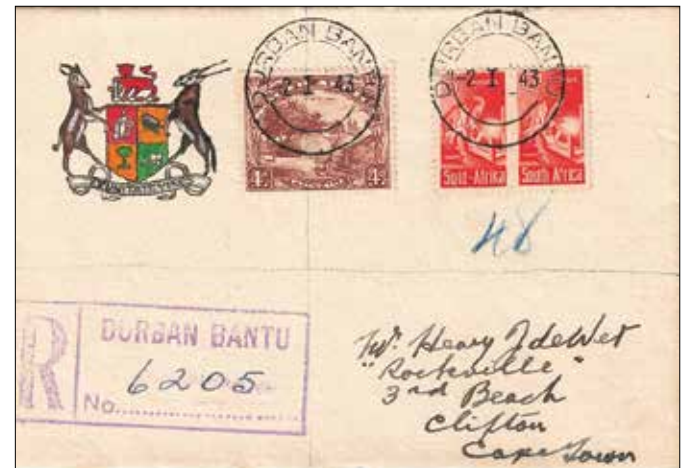 DURBAN BANTU
2 · I 43
DURBAN BANTU
2 · I 43
4D 4D
Suid-Afrika South Africa
48
R
DURBAN BANTU
No. 6205
Mr. Henry J de Wet
"Rockville"
3rd Beach
Clifton
Cape Town